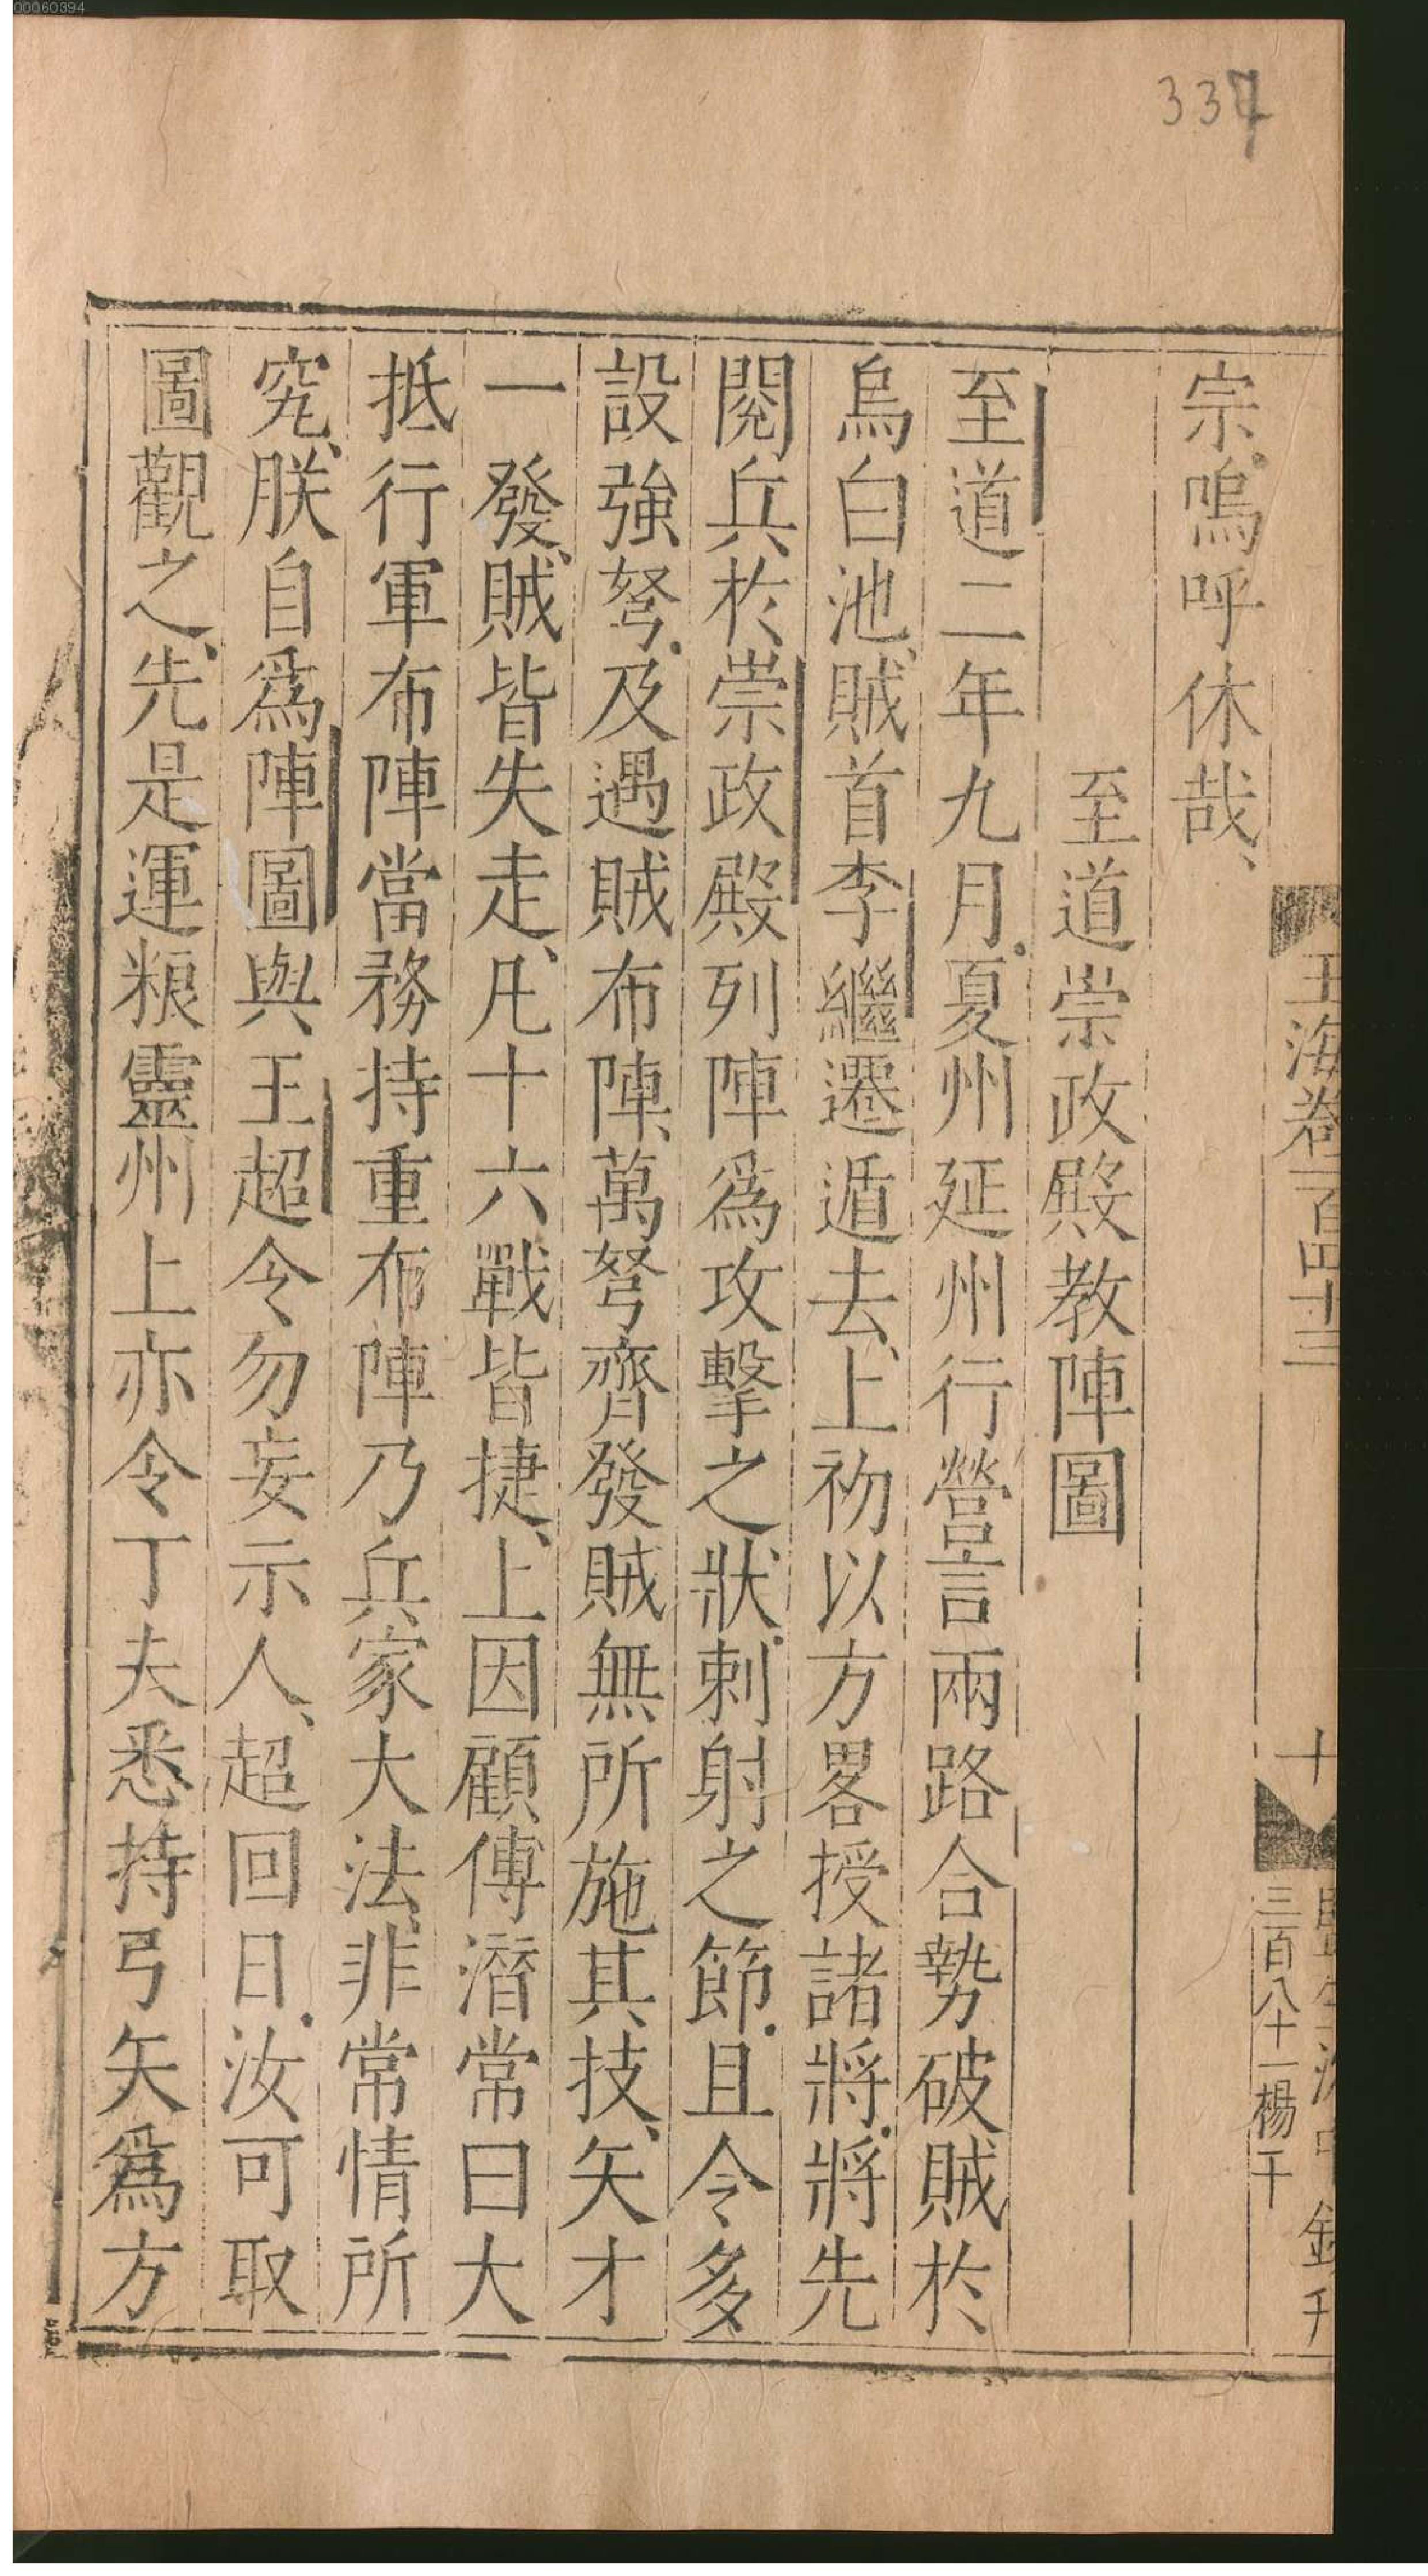 00060394
337
玉海卷一百四十三
十
三百八十一楊干
宗嗚呼休哉
至道崇政殿教陣圖
至道二年九月夏州延州行營言兩路合勢破賊於
烏白池賊首李繼遷遁去上初以方畧授諸將將先
閱兵於崇政殿列陣爲攻擊之狀刺射之節且令多
設強弩及遇賊布陣萬弩齊發賊無所施其技矢才
一發賊皆失走凡十六戰皆捷上因顧傅潛常曰大
抵行軍布陣當務持重布陣乃兵家大法非常情所
究朕自爲陣圖與王超令勿妄示人超回日汝可取
圖觀之先是運粮靈州上亦令丁夫悉持弓矢爲方